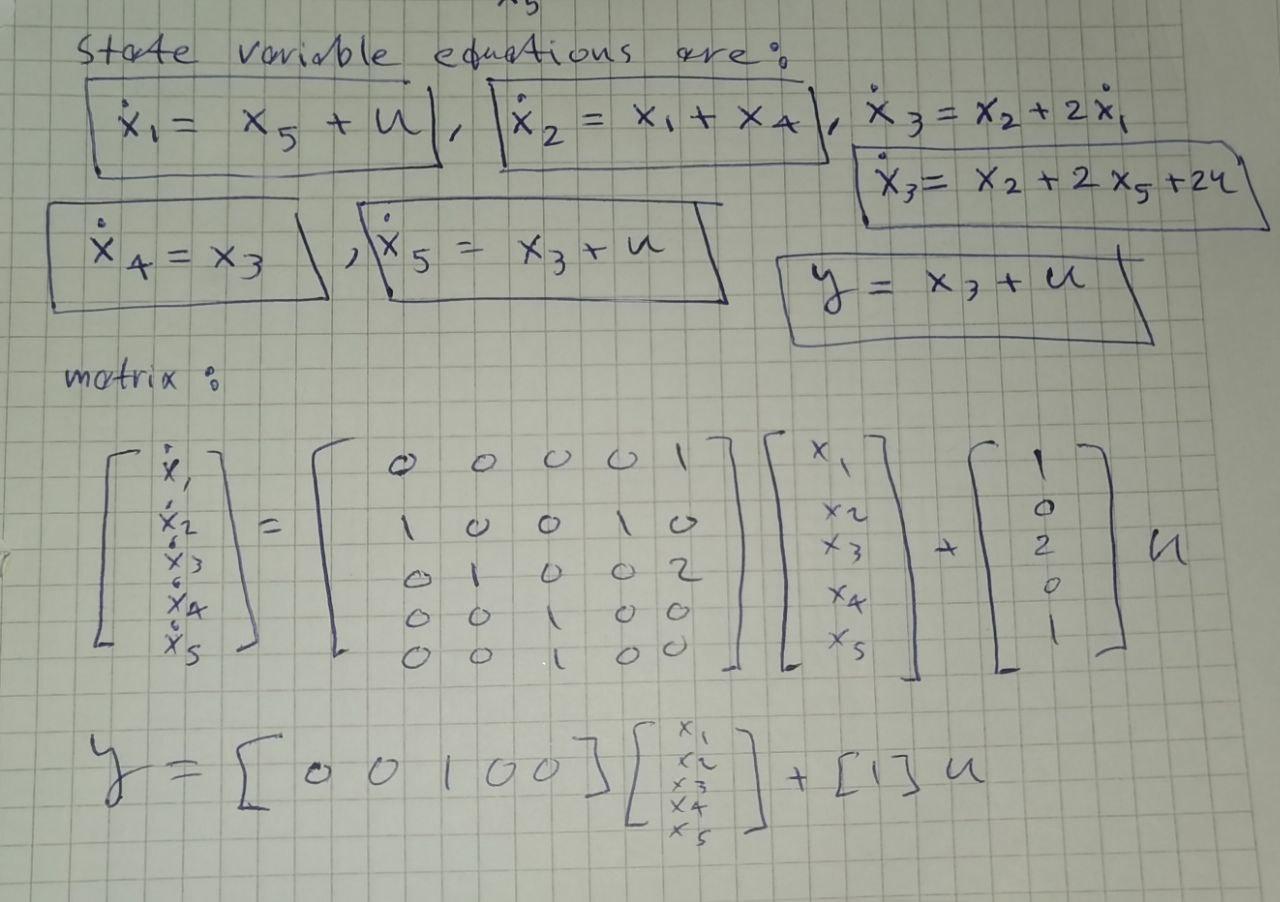 x5
State variable equations are:
ẋ1 = x5 + u, ẋ2 = x1 + x4, ẋ3 = x2 + 2ẋ1
ẋ3 = x2 + 2x5 + 2u
ẋ4 = x3, ẋ5 = x3 + u
y = x3 + u
matrix:
[ẋ1 ẋ2 ẋ3 ẋ4 ẋ5] = [0 0 0 0 1
1 0 0 1 0
0 1 0 0 2
0 0 1 0 0
0 0 1 0 0] [x1 x2 x3 x4 x5] + [1 0 2 0 1] u
y = [0 0 1 0 0] [x1 x2 x3 x4 x5] + [1] u